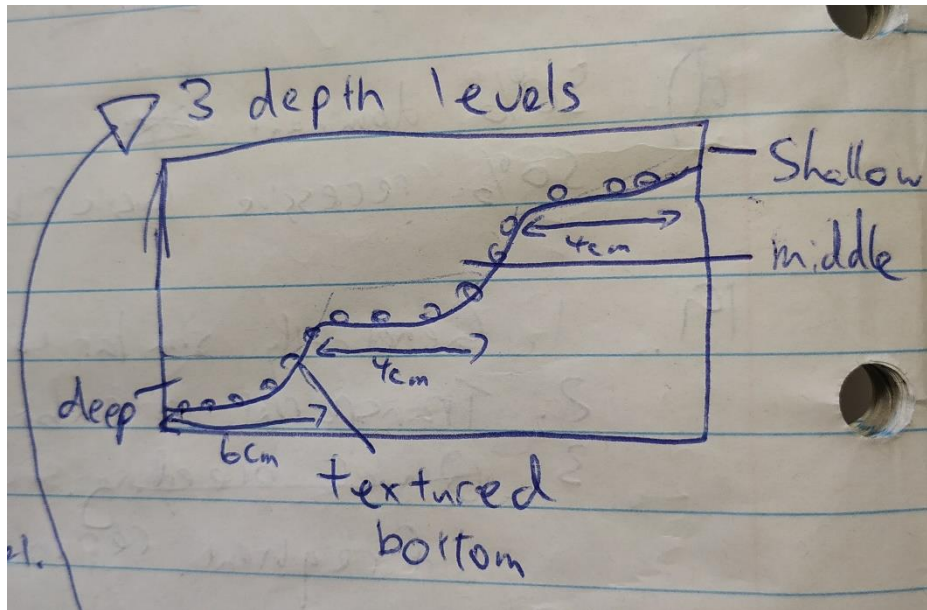 3 depth levels
Shallow
4cm
middle
4cm
deep
6cm
textured
bottom